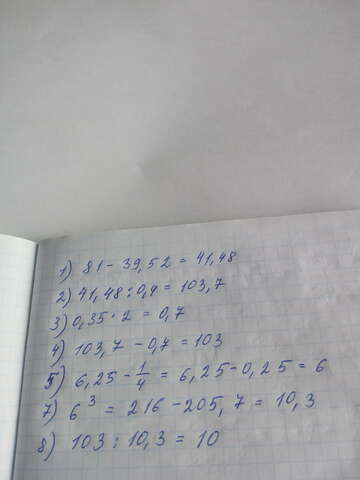 1) 81 - 39,52 = 41,48
2) 41,48 : 0,4 = 103,7
3) 0,35 · 2 = 0,7
4) 103,7 - 0,7 = 103
5) 6,25 - 1/4 = 6,25 - 0,25 = 6
7) 6³ = 216 - 205,7 = 10,3
8) 103 : 10,3 = 10